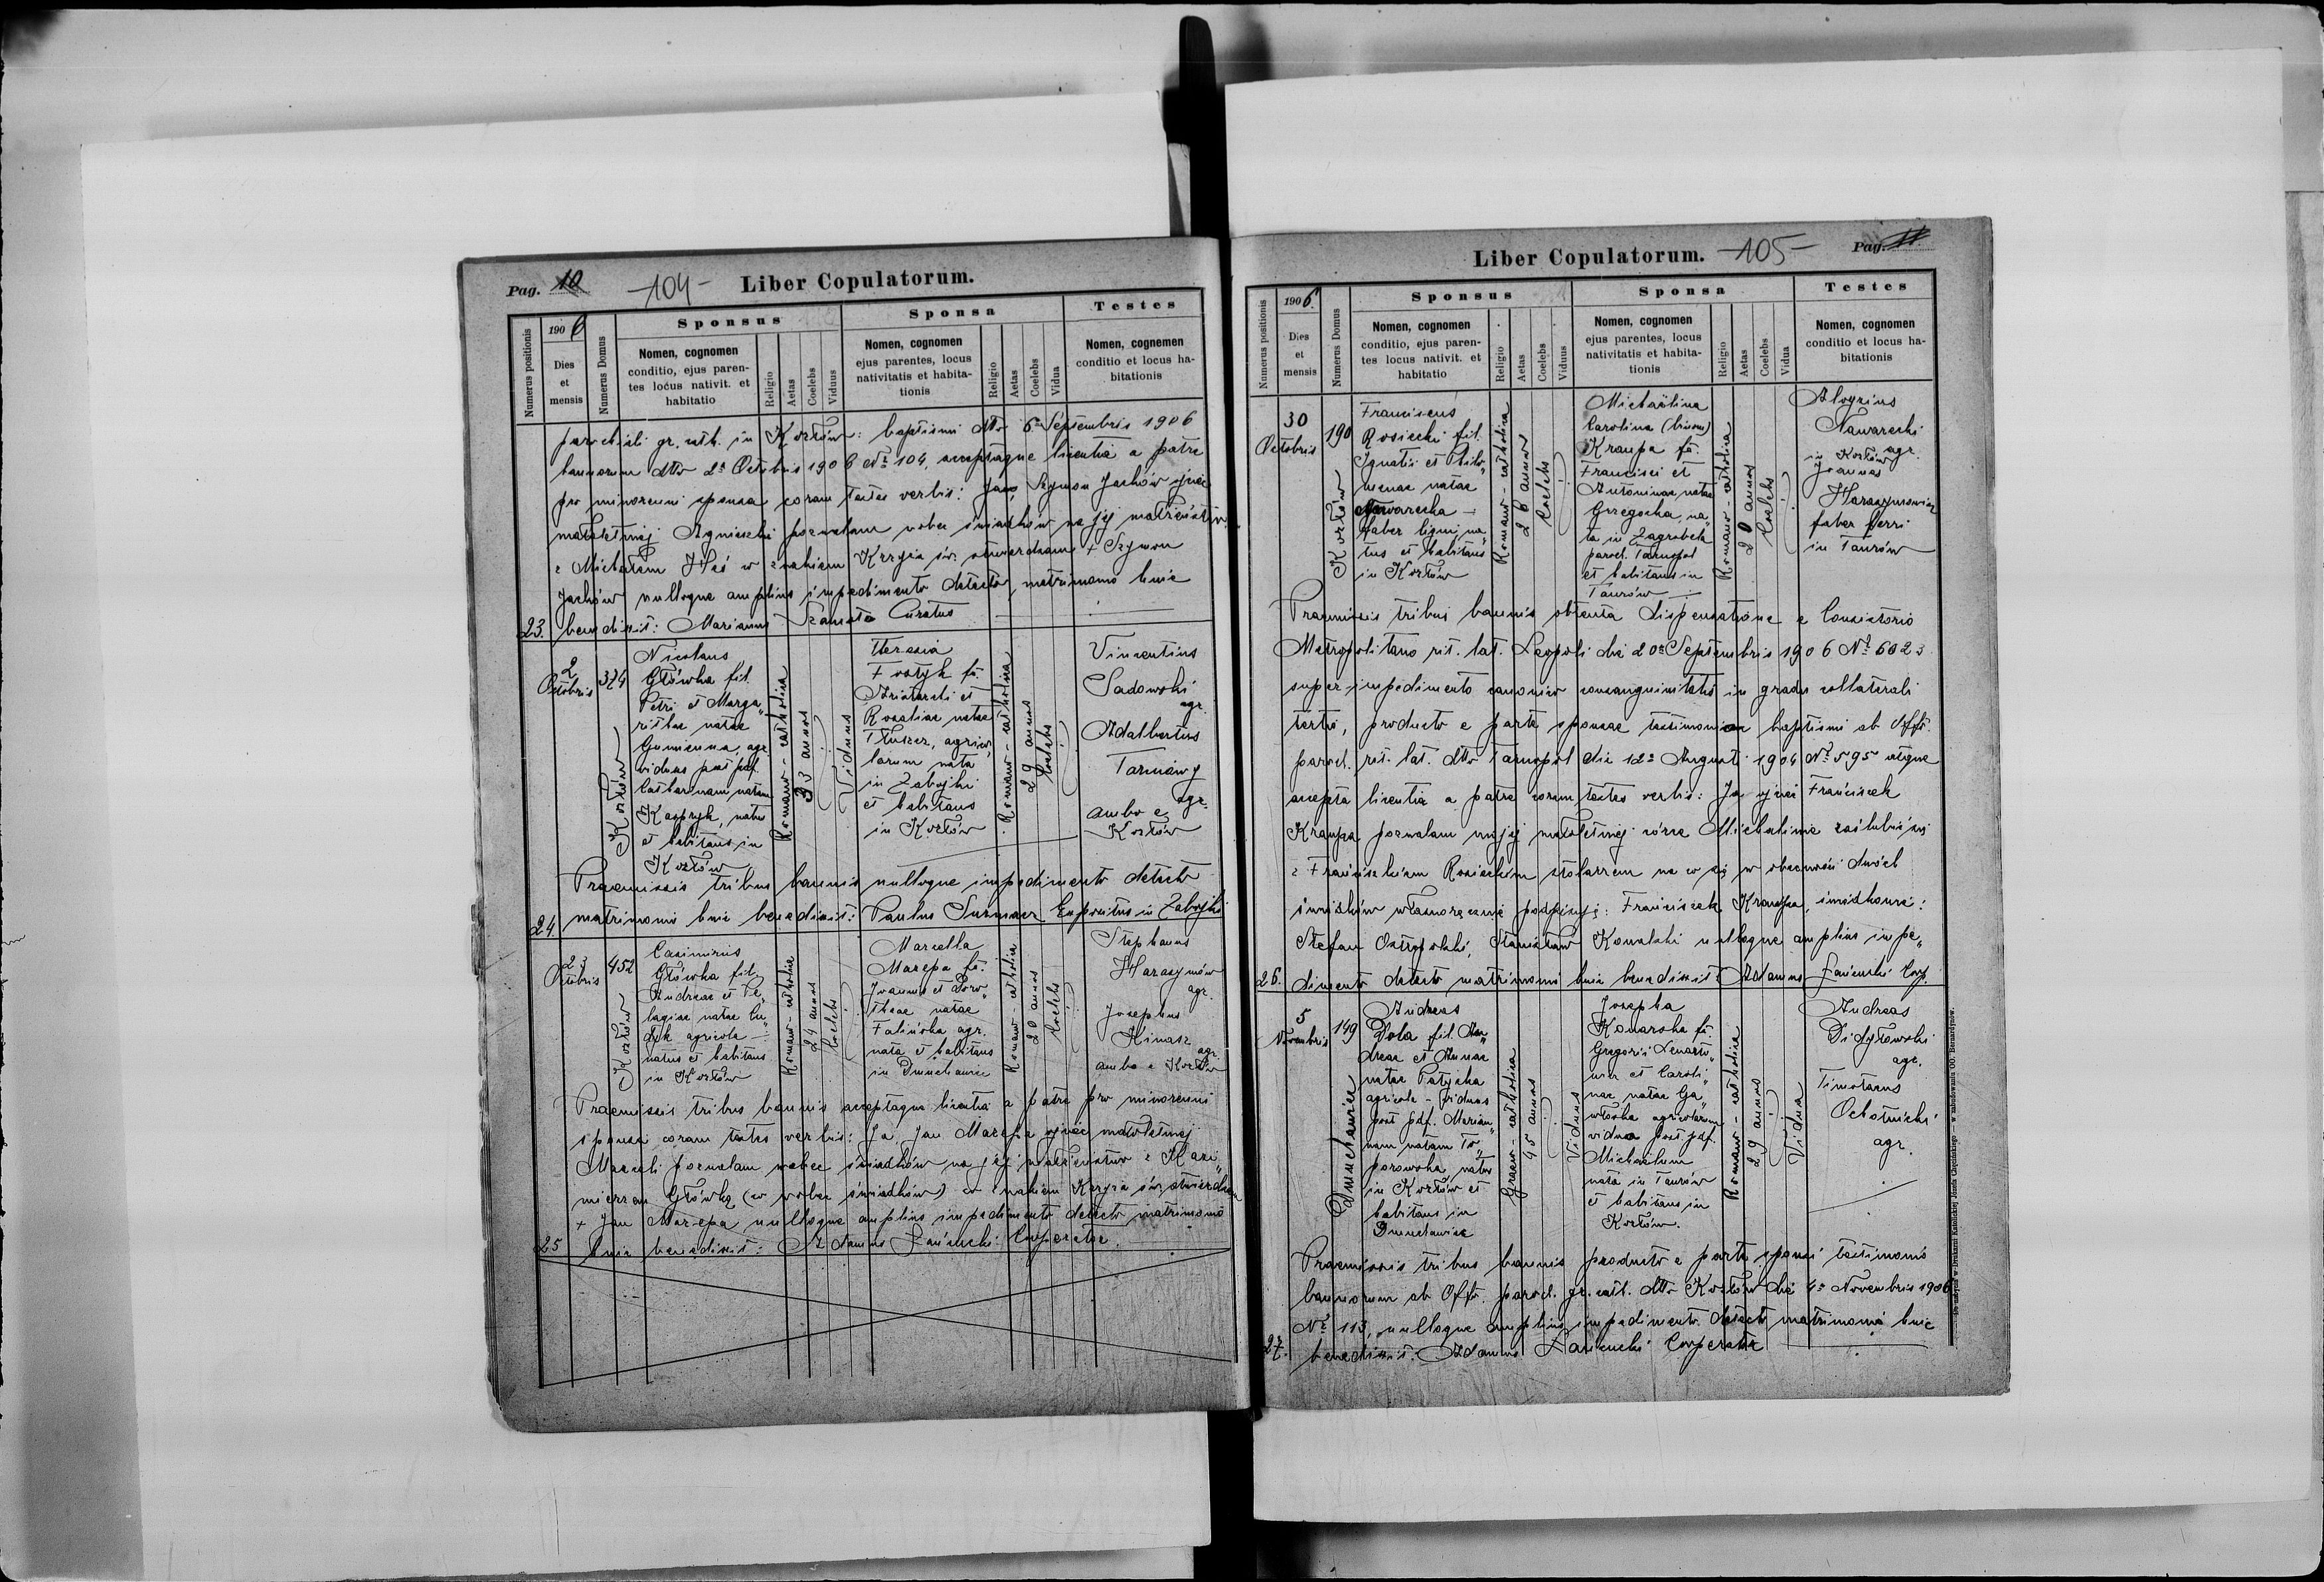 Pag. 10
-104-
Liber Copulatorum.
Numerus positionis
1906
Dies
et
mensis
Numerus Domus
Sponsus
Nomen, cognomen
conditio, ejus paren-
tes locus nativit. et
habitatio
Religio
Aetas
Coelebs
Viduus
Sponsa
Nomen, cognomen
ejus parentes, locus
nativitatis et habita-
tionis
Religio
Aetas
Coelebs
Vidua
Testes
Nomen, cognomen
conditio et locus ha-
bitationis
parochiali gr. cath. in Kozłów: baptismi dtto 6a Septembris 1906
bannorum dtto 2a Octobris 1906 Nr 104, acceptaque licentia a patre
pro minorenni sponsa coram testes verbis: Ja, Szymon Jachów ojciec
małoletniej Agnieszki pozwalam wobec świadków na jej małżeństwo
z Michałem Haś w znakiem Krzyża św. stwierdzam + Szymon
Jachów nulloque amplius impedimento detecto, matrimonio huic
23. benedixit: Marianus Curatus
2
Octobris
374
Kozłów
Nicolaus
Główka fil.
Petri et Marga„
rithae natae
Gumienna, agr.
viduus post pdf.
Catharinam natam
Kasprzyk, natus
et habitans in
Kozłów
Romano-catholica
33 annos
Viduus
Theresia
Fostyk fa.
et
Rosaliae natae
Tłuszcz, agrico„
larum nata
in Zabojki
et habitans
in Kozłów
Romano-catholica
29 annos
Coelebs
Vincentius
Sadowski
agr.
Adalbertus
Tarnawy
agr.
ambo e
Kozłów
Praemissis tribus bannis nulloque impedimento detecto
24. matrimonio huic benedixit: Paulus Expositus in Zabojki
23
Octobris
452
Kozłów
Casimirus
Główka fil.
Andreae et Pe„
lagiae natae Cu„
dyk agricola -
natus et habitans
in Kozłów
Romano-catholica
24 annos
Coelebs
Marcella
Mazepa fa.
Joannis et Doro„
theae natae
Falińska agr.
nata et habitans
in Dmuchawiec
Romano-catholica
20 annos
Coelebs
Stephanus
Harasymów
agr.
Josephus
Himasz
agr.
ambo e Kozłów
Praemissis tribus bannis acceptaque licentia a patre pro minorenni
sponsa coram testes verbis: Ja, Jan Mazepa ojciec małoletniej
Marceli pozwalam wobec świadków na jej małżeństwo z Kazi„
mierzem Główką (co wobec świadków) co znakiem Krzyża św. stwierdzam
+ Jan Mazepa nulloque amplius impedimento detecto matrimonio
25 huic benedixit: Adamus Łańcucki Cooperator.
Liber Copulatorum.
-105-
Pag. 11
Numerus positionis
1906.
Dies
et
mensis
Numerus Domus
Sponsus
Nomen, cognomen
conditio, ejus paren-
tes locus nativit. et
habitatio
Religio
Aetas
Coelebs
Viduus
Sponsa
Nomen, cognomen
ejus parentes, locus
nativitatis et habita-
tionis
Religio
Aetas
Coelebs
Vidua
Testes
Nomen, cognomen
conditio et locus ha-
bitationis
30
Octobris
190
Kozłów
Franciscus
Rosiecki fil.
Ignatii et Philo„
menae natae
Nawarecka -
faber ligni, na„
tus et habitans
in Kozłów
Romano-catholica
26 annos
Coelebs
Michaëlina
Carolina (binom)
Kraupa fa.
Francisci et
Antoninae natae
Grzegocka, na„
ta in Zagrobela
paroch. Tarnopol
et habitans in
Taurów
Romano-catholica
20 annos
Coelebs
Aloysius
Nawarecki
agr.
in Kozłów
Joannes
Harasymowicz
faber ferri
in Taurów
Praemissis tribus bannis obtenta dispensatione e Consistorio
Metropolitano rit. lat. Leopoli die 20a Septembris 1906 Nr 6023
super impedimento canonico consanguinitatis in gradu collaterali
tertio, producto e parte sponsae testimonio baptismi ab Offo.
paroch. rit. lat. dtto Tarnopol die 12a Augusti 1904 Nr 595 atque
accepta licentia a patre coram testes verbis: Ja ojciec Franciszek
Kraupa pozwalam mojej małoletniej córce Michalinie zaślubić się
z Franciszkiem Rosieckim stolarzem na co się w obecności dwóch
świadków własnoręcznie podpisuję: Franciszek Kraupa, świadkowie:
Stefan Stanisław Kowalski nulloque amplius impe„
26. dimento detecto matrimonio huic benedixit: Adamus Łańcucki Coop.
5
Novembris
149
Dmuchawiec
Andreas
Dola fil. An„
dreae et Annae
natae Patycka
agricola - viduus
post pdf. Marian„
nam natam To„
porowska natus
in Kozłów et
habitans in
Dmuchawiec
Graeco-catholica
45 annos
Viduus
Josepha
Konarska fa.
Gregorii Lenarto„
wicz et Caroli„
nae natae Ga„
włoska agricolarum
vidua post pdf.
Michaelem
nata in Taurów
et habitans in
Kozłów.
Romano-catholica
29 annos
Vidua
Andreas
Didyłowski
agr.
Timoteus
Ochotnicki
agr.
Praemissis tribus bannis producto e parte sponsi testimonio
bannorum ab Offo. paroch. gr. cath. dtto Kozłów die 4a Novembris 1906
Nr 113, nulloque amplius impedimento detecto matrimonio huic
27. benedixit: Adamus Łańcucki Cooperator